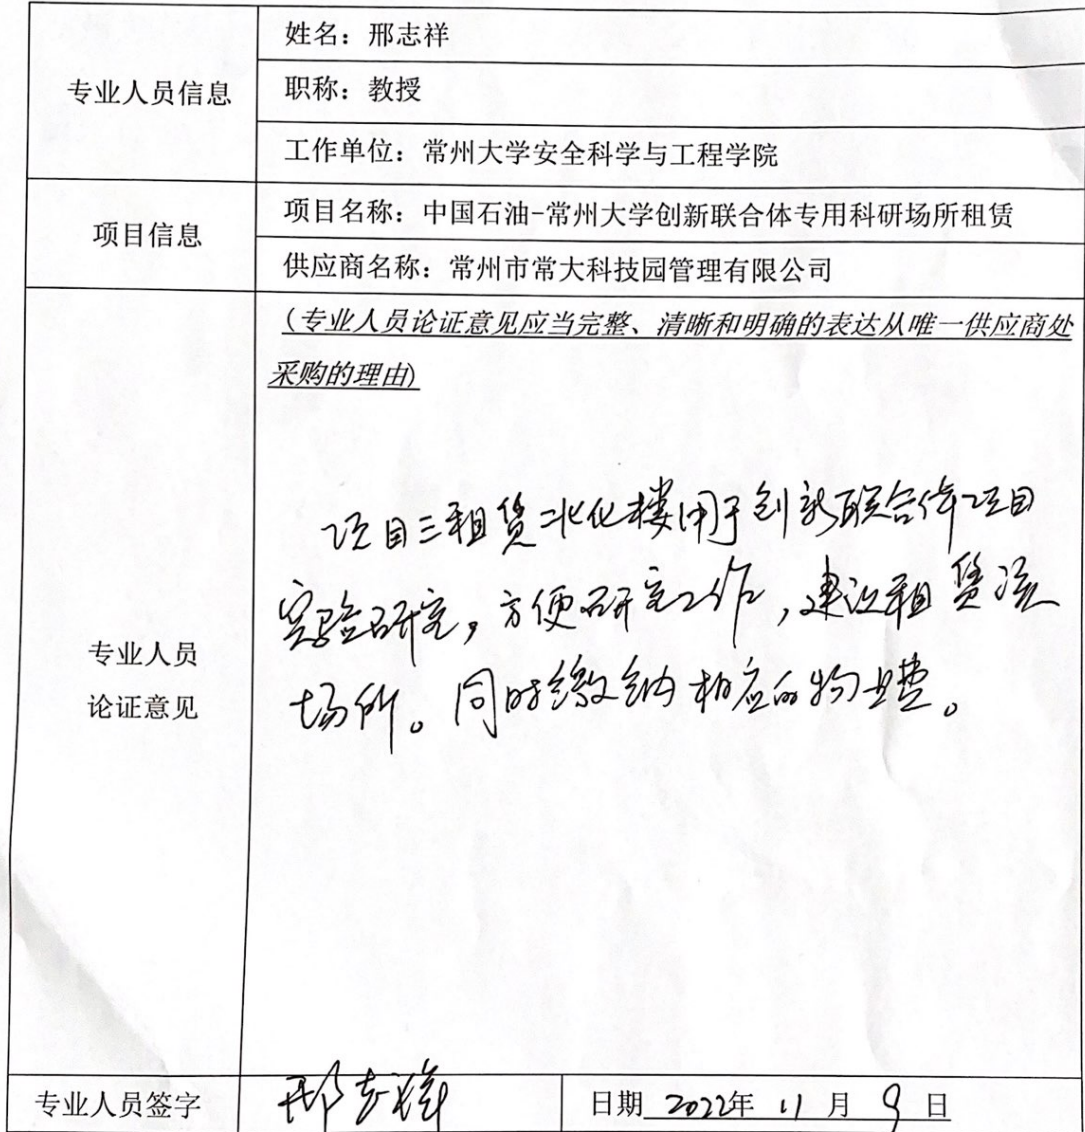 专业人员信息
姓名：邢志祥
职称：教授
工作单位：常州大学安全科学与工程学院
项目信息
项目名称：中国石油-常州大学创新联合体专用科研场所租赁
供应商名称：常州市常大科技园管理有限公司
专业人员
论证意见
（专业人员论证意见应当完整、清晰和明确的表达从唯一供应商处
采购的理由）
项目三租赁北化楼用于创新联合体项目
实验研究，方便研究工作，建议租赁该
场所。同时缴纳相应的物业费。
专业人员签字
邢志祥
日期 2022年 11 月 9 日